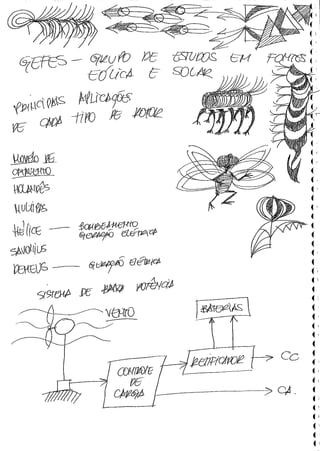 GEFES - GRUPO DE ESTUDOS EM FONTES
EÓLICA E SOLAR
PRINCIPAIS APLICAÇÕES
DE CADA TIPO DE ROTOR
MODELO DE
HOLANDÊS
MULTIPÁS
HÉLICE — BOMBEAMENTO
GERAÇÃO ELÉTRICA
SAVONIUS
GERAÇÃO ELÉTRICA
SISTEMA DE BAIXA POTÊNCIA
VENTO
BATERIAS
RETIFICADOR
CC
CONTROLE
DE
CARGA
CA.